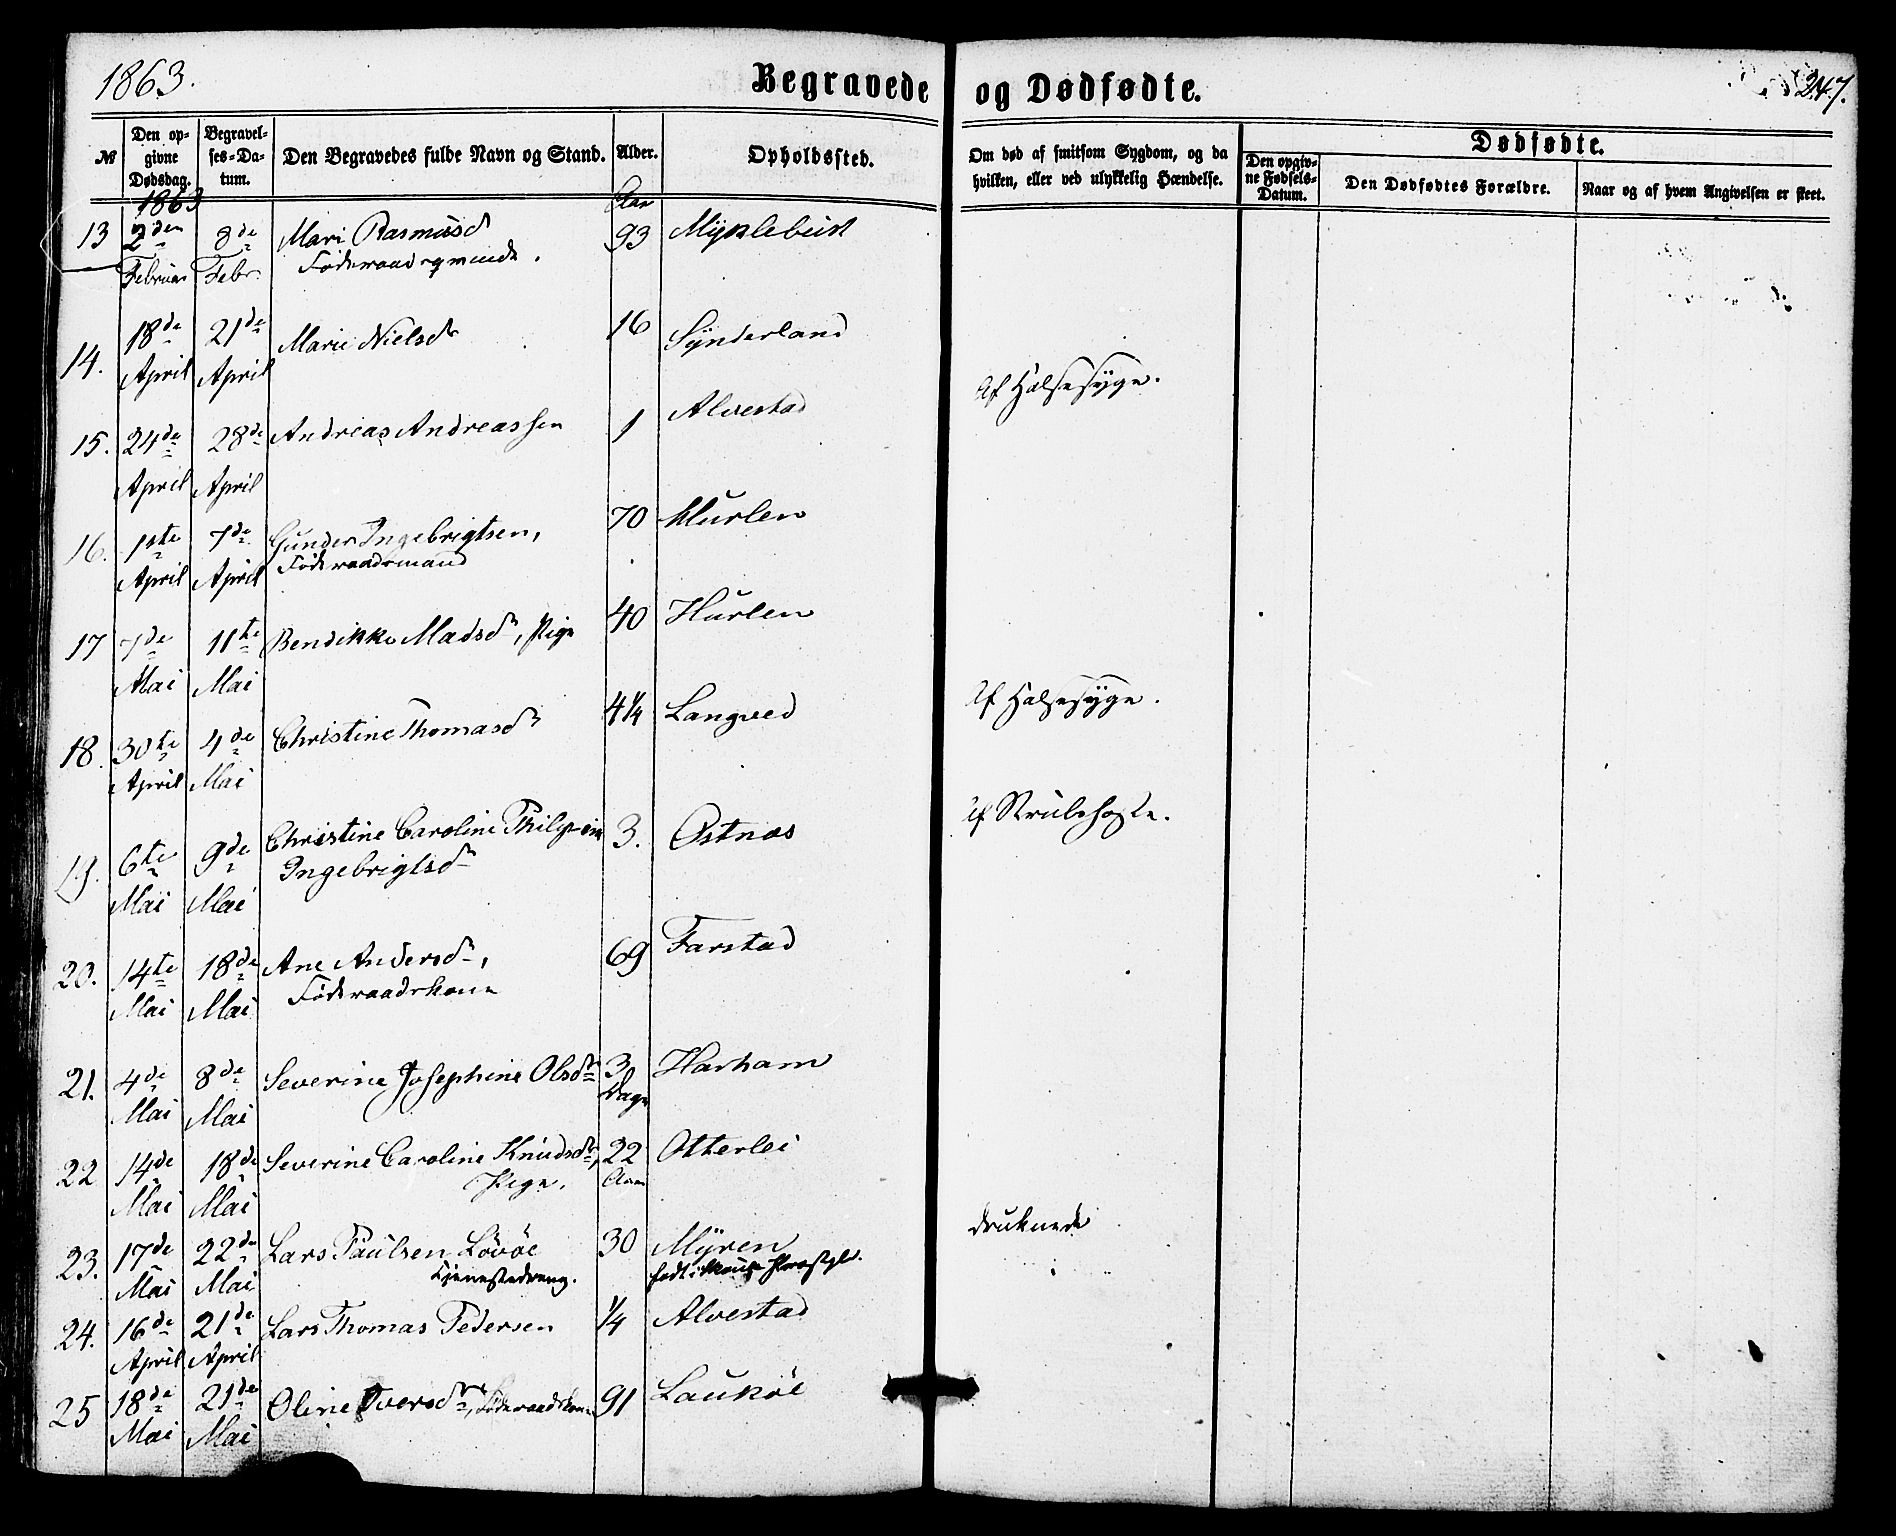 1863.
Begravede og Dødfødte.
247.
№
Den op-
givne
Dødsdag.
Begravel-
ses-Da-
tum.
Den Begravedes fulde Navn og Stand.
Alder.
Opholdssted.
Om død af smitsom Sygdom, og da
hvilken, eller ved ulykkelig Hændelse.
Dødfødte.
Den opgiv-
ne Fødsels-
Datum.
Den Dødfødtes Forældre.
Naar og af hvem Angivelsen er skeet.
1863
Aar
13 2den 8de Mari Rasmusd 93 Myklebust
Februar Febr. Føderaadsqvinde.
14. 18de 21de Marie Nielsdr 16 Synderland
April April Af Halssyge.
15. 24de 28de Andreas Andreassen 1 Alvestad
April April
16. 1ste 7de Gunder Ingebrigtsen, 70 Hurlen
April April Føderaadsmand
17 7de 11te Bendikke Madsdr, Pige 40 Hurlen
Mai Mai
18. 30te 4de Christine Thomasdr 4¼ Langved Af Halssyge.
April Mai
19. 6te 9de Christine Caroline 3. Ostnæs Af Strubehoste.
Mai Mai Ingebrigtsdr
20. 14te 18de Ane Andersdr, 69 Farstad
Mai Mai Føderaadskone
21. 4de 8de Severine Josephine Olsdr 3 Harham
Mai Mai Dage
22 14de 18de Severine Caroline Knudsdr, 22 Otterlei
Mai Mai Pige. Aar
23. 17de 22de Lars Paulsen Løvøe 30 Myren druknede
Mai Mai Tjenestedreng. født i
24. 16de 21de Lars Thomas Pedersen ¼ Alvestad
April April
25 18de 21de Oline Iversdr, Føderaadskone 91 Laukøe
Mai Mai